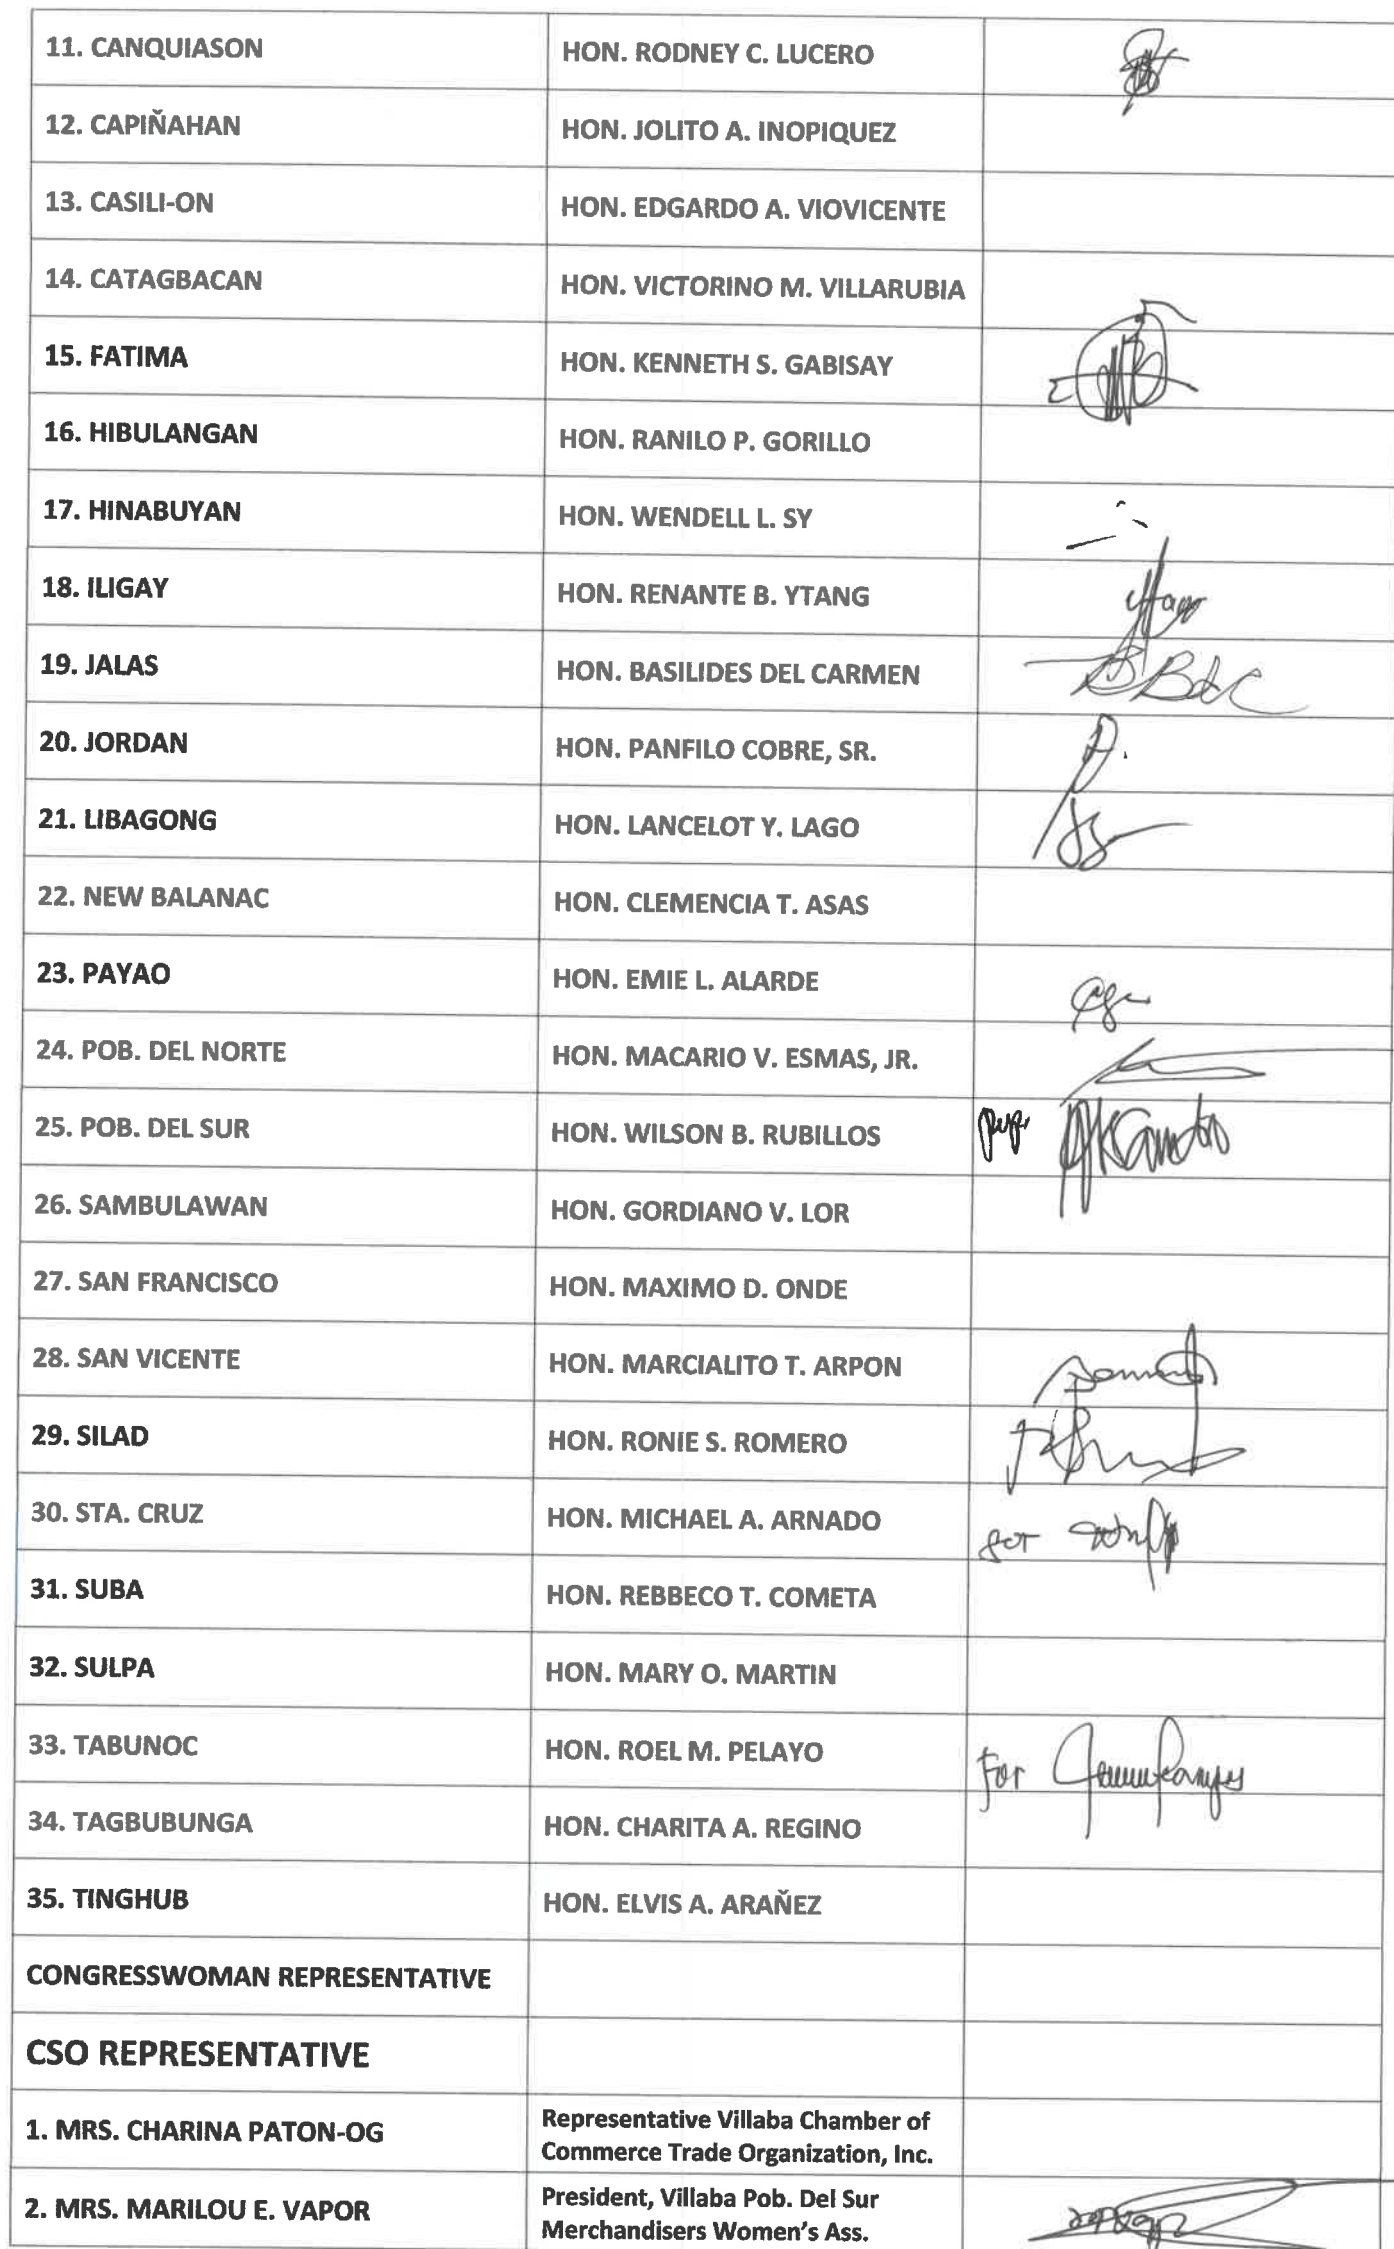 11. CANQUIASON HON. RODNEY C. LUCERO
12. CAPIÑAHAN HON. JOLITO A. INOPIQUEZ
13. CASILI-ON HON. EDGARDO A. VIOVICENTE
14. CATAGBACAN HON. VICTORINO M. VILLARUBIA
15. FATIMA HON. KENNETH S. GABISAY
16. HIBULANGAN HON. RANILO P. GORILLO
17. HINABUYAN HON. WENDELL L. SY
18. ILIGAY HON. RENANTE B. YTANG
19. JALAS HON. BASILIDES DEL CARMEN
20. JORDAN HON. PANFILO COBRE, SR.
21. LIBAGONG HON. LANCELOT Y. LAGO
22. NEW BALANAC HON. CLEMENCIA T. ASAS
23. PAYAO HON. EMIE L. ALARDE
24. POB. DEL NORTE HON. MACARIO V. ESMAS, JR.
25. POB. DEL SUR HON. WILSON B. RUBILLOS
26. SAMBULAWAN HON. GORDIANO V. LOR
27. SAN FRANCISCO HON. MAXIMO D. ONDE
28. SAN VICENTE HON. MARCIALITO T. ARPON
29. SILAD HON. RONIE S. ROMERO
30. STA. CRUZ HON. MICHAEL A. ARNADO
31. SUBA HON. REBBECO T. COMETA
32. SULPA HON. MARY O. MARTIN
33. TABUNOC HON. ROEL M. PELAYO For
34. TAGBUBUNGA HON. CHARITA A. REGINO
35. TINGHUB HON. ELVIS A. ARAÑEZ
CONGRESSWOMAN REPRESENTATIVE
CSO REPRESENTATIVE
1. MRS. CHARINA PATON-OG Representative Villaba Chamber of
Commerce Trade Organization, Inc.
2. MRS. MARILOU E. VAPOR President, Villaba Pob. Del Sur
Merchandisers Women's Ass.